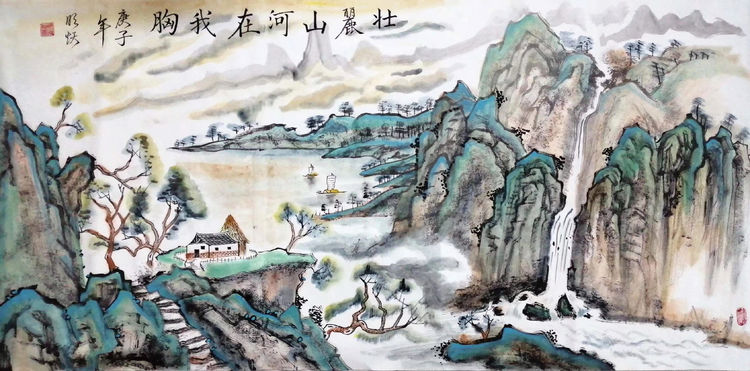 壮麗山河在我胸
庚子
年